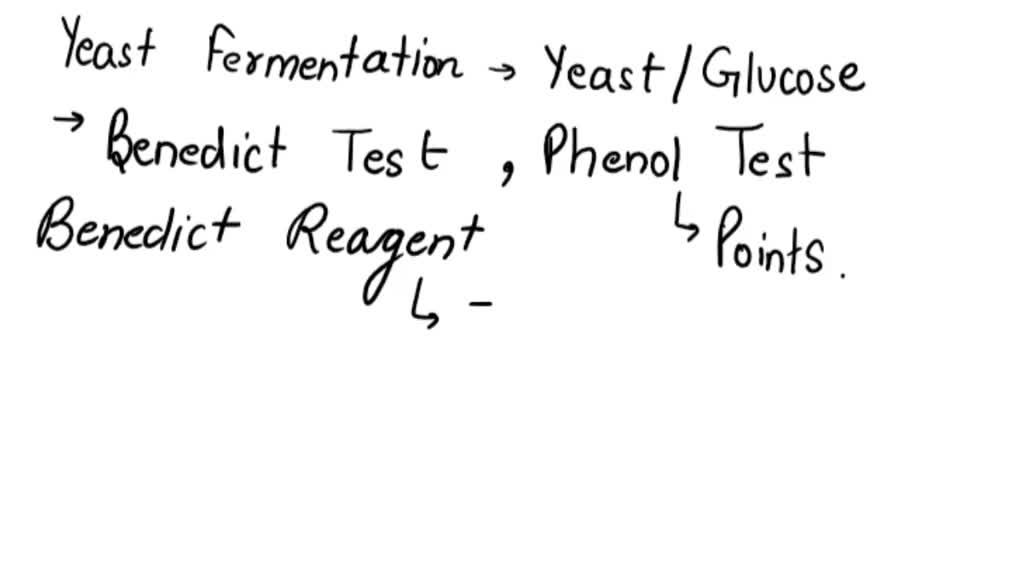 Yeast Fermentation → Yeast/Glucose
→ Benedict Test , Phenol Test
Benedict Reagent ↳ Points.
↳ -